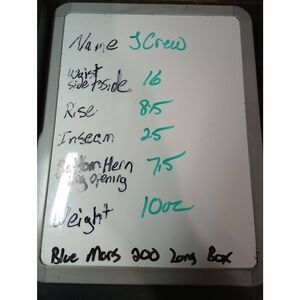 Name J Crew
Waist
side to side 16
Rise 8.5
Inseam 25
Bottom Hem 7.5
Leg Opening
Weight 10oz
Blue Mars 200 Long Box